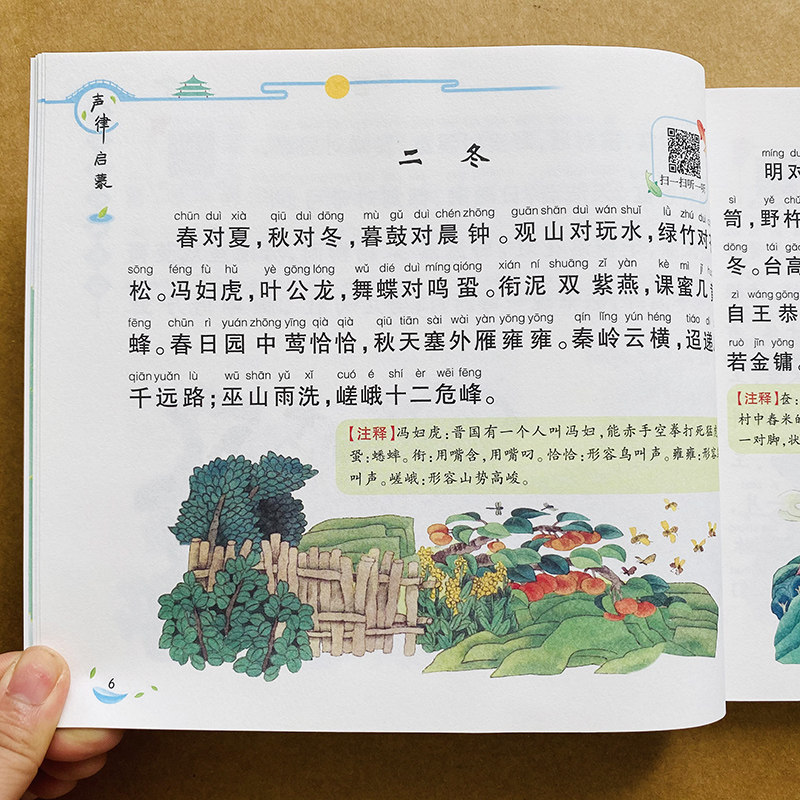 声律启蒙
二 冬
扫一扫听一听
chūn duì xià qiū duì dōng mù gǔ duì chén zhōng guān shān duì wán shuǐ lǜ zhú
春对夏，秋对冬，暮鼓对晨钟。观山对玩水，绿竹对
sōng féng fù hǔ yè gōng lóng wǔ dié duì míng qióng xián ní shuāng zǐ yàn kè mì
松。冯妇虎，叶公龙，舞蝶对鸣蛩。衔泥双紫燕，课蜜几
fēng chūn rì yuán zhōng yīng qià qià qiū tiān sài wài yàn yōng yōng qín lǐng yún héng tiáo
蜂。春日园中莺恰恰，秋天塞外雁雍雍。秦岭云横，迢递
qiān yuǎn lù wū shān yǔ xǐ cuó é shí èr wēi fēng
千远路；巫山雨洗，嵯峨十二危峰。
【注释】冯妇虎：晋国有一个人叫冯妇，能赤手空拳打死猛
蛩：蟋蟀。衔：用嘴含，用嘴叼。恰恰：形容鸟叫声。雍雍：形
叫声。嵯峨：形容山势高峻。
6
míng duì
明对
sì yě
笥，野杵
dōng tái gāo
冬。台高
zì wáng gōng
自王恭
ruò jīn yōng
若金镛。
【注释】
村中舂米的
一对脚，状